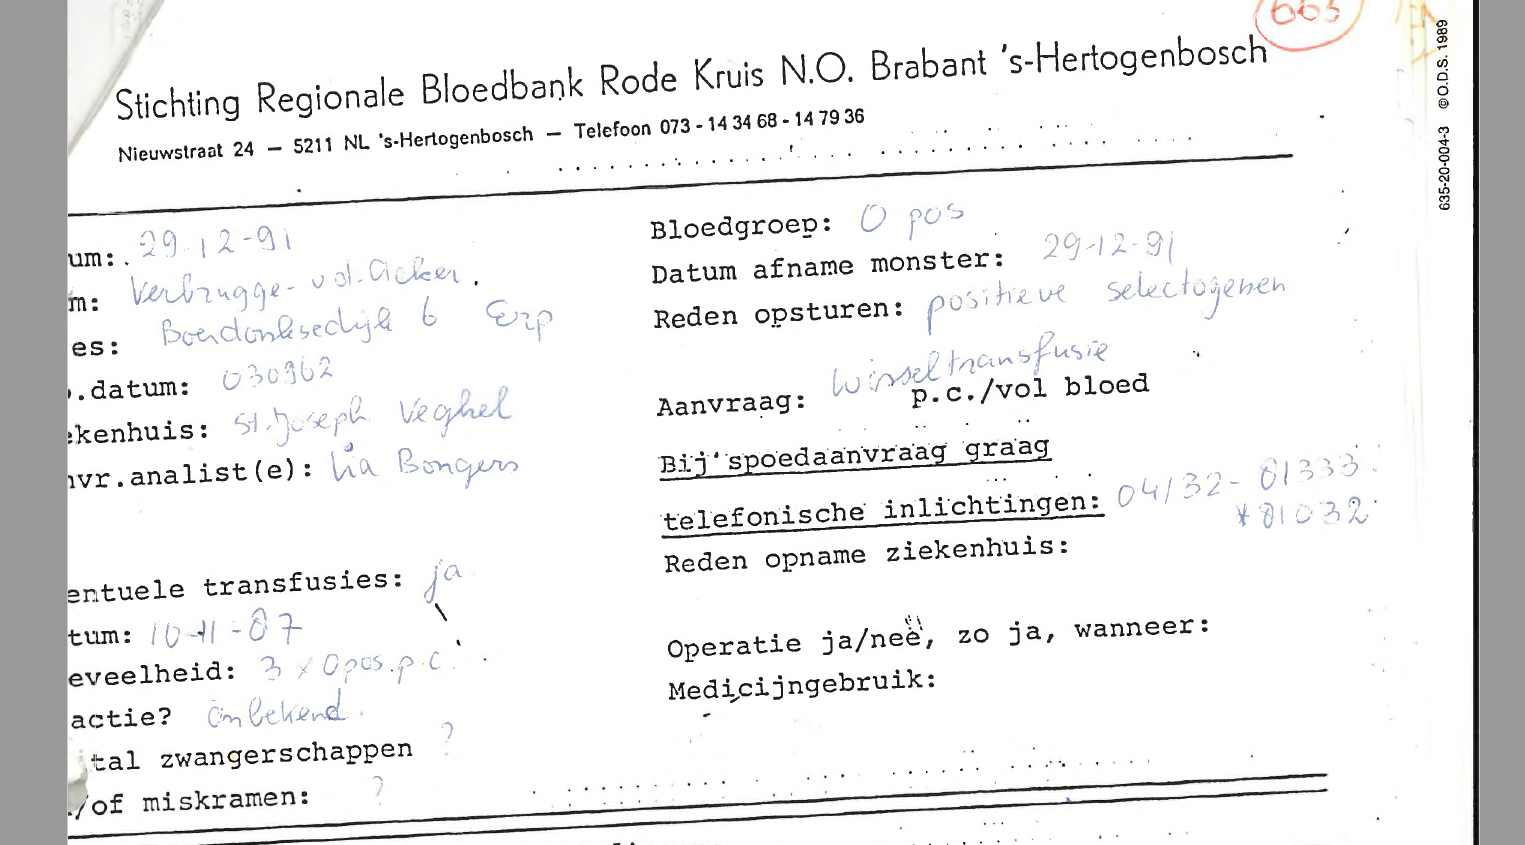 665
Stichting Regionale Bloedbank Rode Kruis N.O. Brabant 's-Hertogenbosch
Nieuwstraat 24 — 5211 NL 's-Hertogenbosch — Telefoon 073 - 14 34 68 - 14 79 36
635-20-004-3 ©O.D.S. 1989
um: 29-12-91
m: Verbrugge- v d.
es: 6 Erp
.datum: 030962
kenhuis: St. Joseph Veghel
nvr.analist(e): Ria Bongers
entuele transfusies: ja
tum: 10-11-87
eveelheid: 3 x O pos. p.c.
actie? onbekend.
tal zwangerschappen ?
/of miskramen: ?
Bloedgroep: O pos
Datum afname monster: 29-12-91
Reden opsturen: positieve selectogenen
wisseltransfusie
Aanvraag: p.c./vol bloed
Bij spoedaanvraag graag
telefonische inlichtingen: 04132-81333
*81032
Reden opname ziekenhuis:
Operatie ja/nee, zo ja, wanneer:
Medicijngebruik: